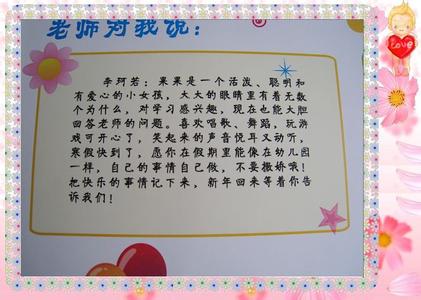 老师对我说：
李珂若：果果是一个活泼、聪明和
有爱心的小女孩，大大的眼睛里有着无数
个为什么，对学习感兴趣，现在也能大胆
回答老师的问题。喜欢唱歌、舞蹈，玩游
戏可开心了，笑起来的声音悦耳又动听，
寒假快到了，愿你在假期里能像在幼儿园
一样，自己的事情自己做，不要撒娇哦！
把快乐的事情记下来，新年回来等着你告
诉我们！
Love